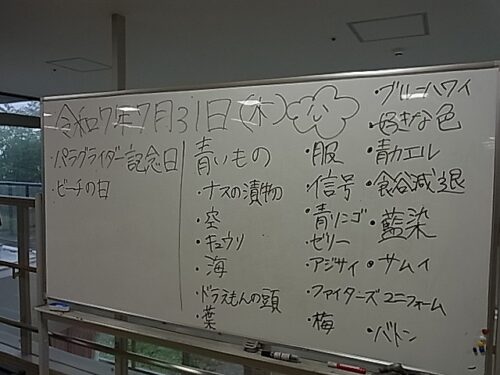 令和7年7月31日(木)
・パラグライダー記念日
・ビーチの日
青いもの
・ナスの漬物
・空
・キュウリ
・海
・ドラえもんの頭
・葉
・服
・信号
・青リンゴ
・ゼリー
・アジサイ
・ファイターズユニフォーム
・梅
・ブルーハワイ
・好きな色
・青カエル
・食谷減退
・藍染
・サムイ
・バトン